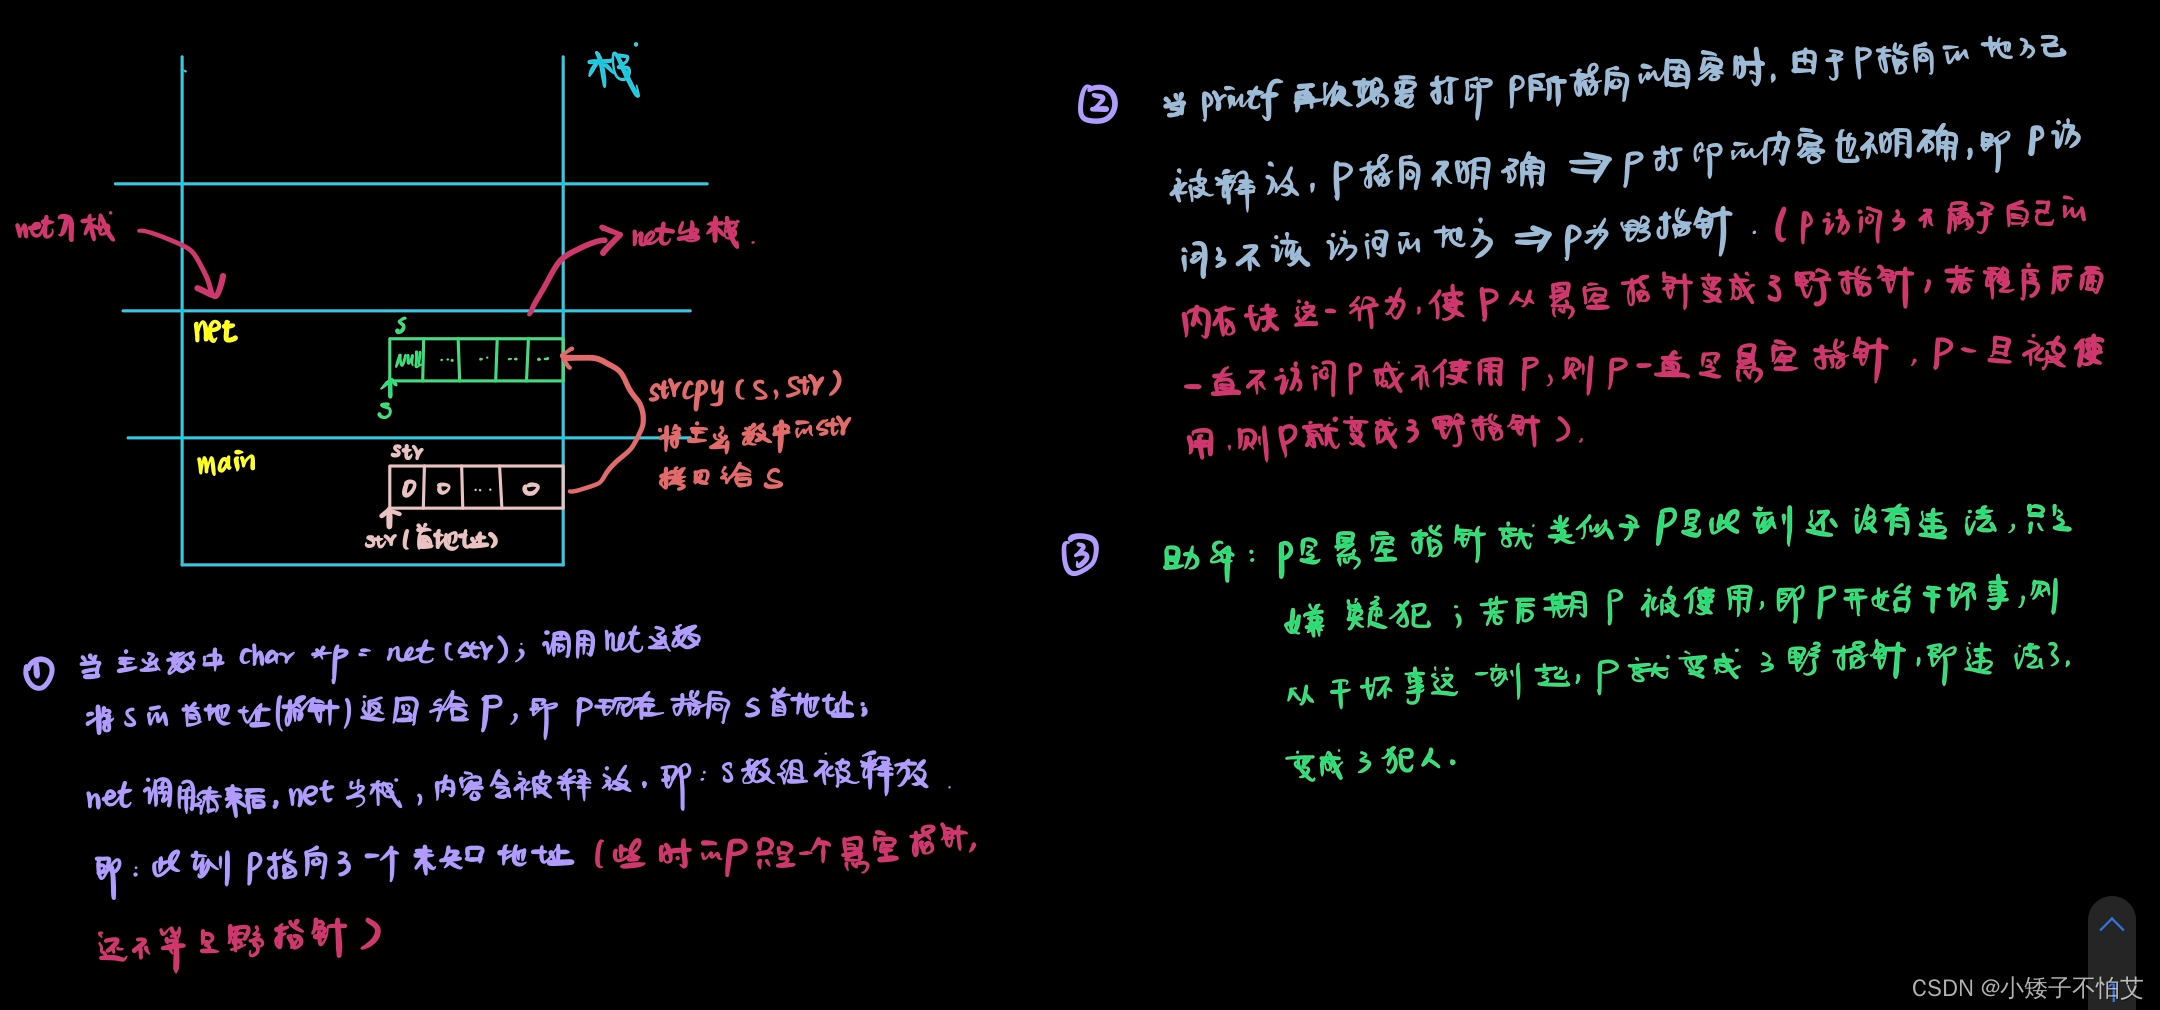 栈
net入栈
net出栈.
net
s
NULL ... .. .. ..
s
strcpy(s,str)
将主函数中的str
拷贝给s
main
str
0 0 ... 0
str(首地址)
① 当主函数中char *p = net(str); 调用net函数
将s的首地址(指针)返回给P, 即P现在指向s首地址;
net调用结束后, net出栈, 内容会被释放. 即: s数组被释放.
即: 此刻P指向了一个未知地址 (此时的P只是一个悬空指针,
还不等于野指针)
② 当printf再次想要打印P所指向的内容时, 由于P指向的地方已
被释放, P指向不明确 ⇒ P打印的内容也不明确, 即P访
问了不该访问的地方 ⇒ P为野指针. (P访问了不属于自己的
内存块这一行为, 使P从悬空指针变成了野指针, 若程序后面
一直不访问P或不使用P, 则P一直是悬空指针, P一旦被使
用, 则P就变成了野指针).
③ 助解: P是悬空指针就类似于P是此刻还没有违法, 只是
嫌疑犯; 若后期P被使用, 即P开始干坏事, 则
从干坏事这一刻起, P就变成了野指针, 即违法了,
变成了犯人.
CSDN @小矮子不怕艾